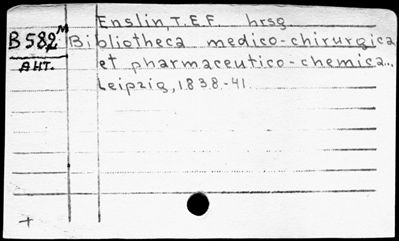 Enslin, T.E.F. hrsg.
B582 M Bibliotheca medico-chirurgica
AHT. et pharmaceutico-chemica...
Leipzig, 1838-41.